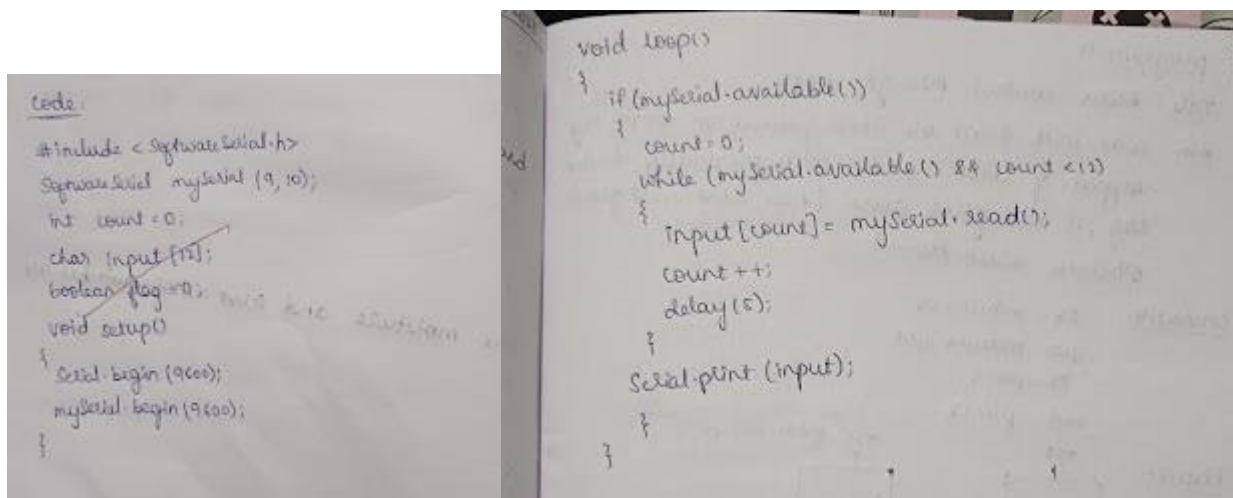 Code:
#include <SoftwareSerial.h>
SoftwareSerial mySerial (9, 10);
int count = 0;
char input [12];
boolean flag = 0;
void setup()
{
Serial.begin (9600);
mySerial.begin (9600);
}
void loop()
{
if (mySerial.available())
{
count = 0;
while (mySerial.available() && count < 12)
{
input [count] = mySerial.read();
count ++;
delay (5);
}
Serial.print (input);
}
}